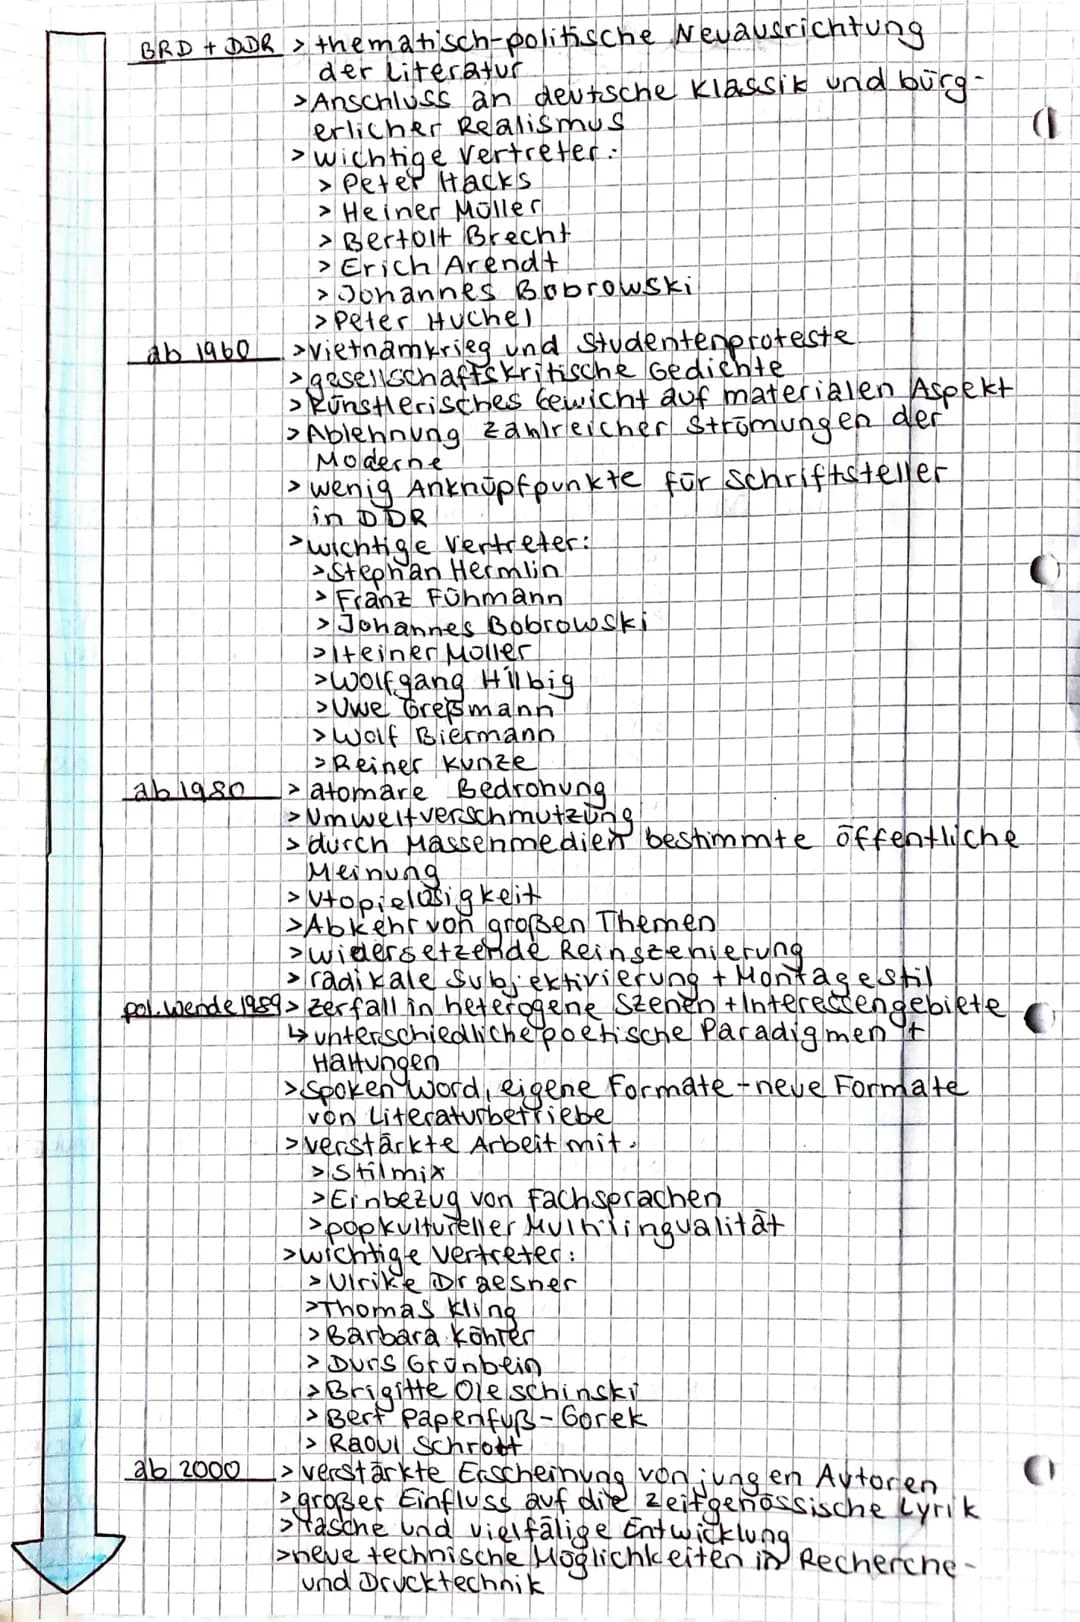 BRD + DDR > thematisch-politische Neuausrichtung
der Literatur
> Anschluss an deutsche Klassik und bürg-
erlicher Realismus
> wichtige Vertreter:
> Peter Hacks
> Heiner Müller
> Bertolt Brecht
> Erich Arendt
> Johannes Bobrowski
> Peter Huchel
ab 1960 > Vietnamkrieg und Studentenproteste
> gesellschaftskritische Gedichte
> künstlerisches Gewicht auf materialen Aspekt
> Ablehnung zahlreicher Strömungen der
Moderne
> wenig Anknüpfpunkte für Schriftsteller
in DDR
> wichtige Vertreter:
> Stephan Hermlin
> Franz Fühmann
> Johannes Bobrowski
> Heiner Müller
> Wolfgang Hilbig
> Uwe Greßmann
> Wolf Biermann
> Reiner Kunze
ab 1980 > atomare Bedrohung
> Umweltverschmutzung
> durch Massenmedien bestimmte öffentliche
Meinung
> Utopielosigkeit
> Abkehr von großen Themen
> widersetzende Reinszenierung
> radikale Subjektivierung + Montagestil
pol. Wende 1989 > Zerfall in heterogene Szenen + Interessengebiete
↳ unterschiedliche poetische Paradigmen +
Haltungen
> Spoken Word, eigene Formate - neue Formate
von Literaturbetriebe
> verstärkte Arbeit mit:
> Stilmix
> Einbezug von Fachsprachen
> popkultureller Multilingualität
> wichtige Vertreter:
> Ulrike Draesner
> Thomas Kling
> Barbara Köhler
> Durs Grünbein
> Brigitte Oleschinski
> Bert Papenfuß-Gorek
> Raoul Schrott
ab 2000 > verstärkte Erscheinung von jungen Autoren
> großer Einfluss auf die zeitgenössische Lyrik
> rasche und vielfälige Entwicklung
> neue technische Möglichkeiten in Recherche-
und Drucktechnik